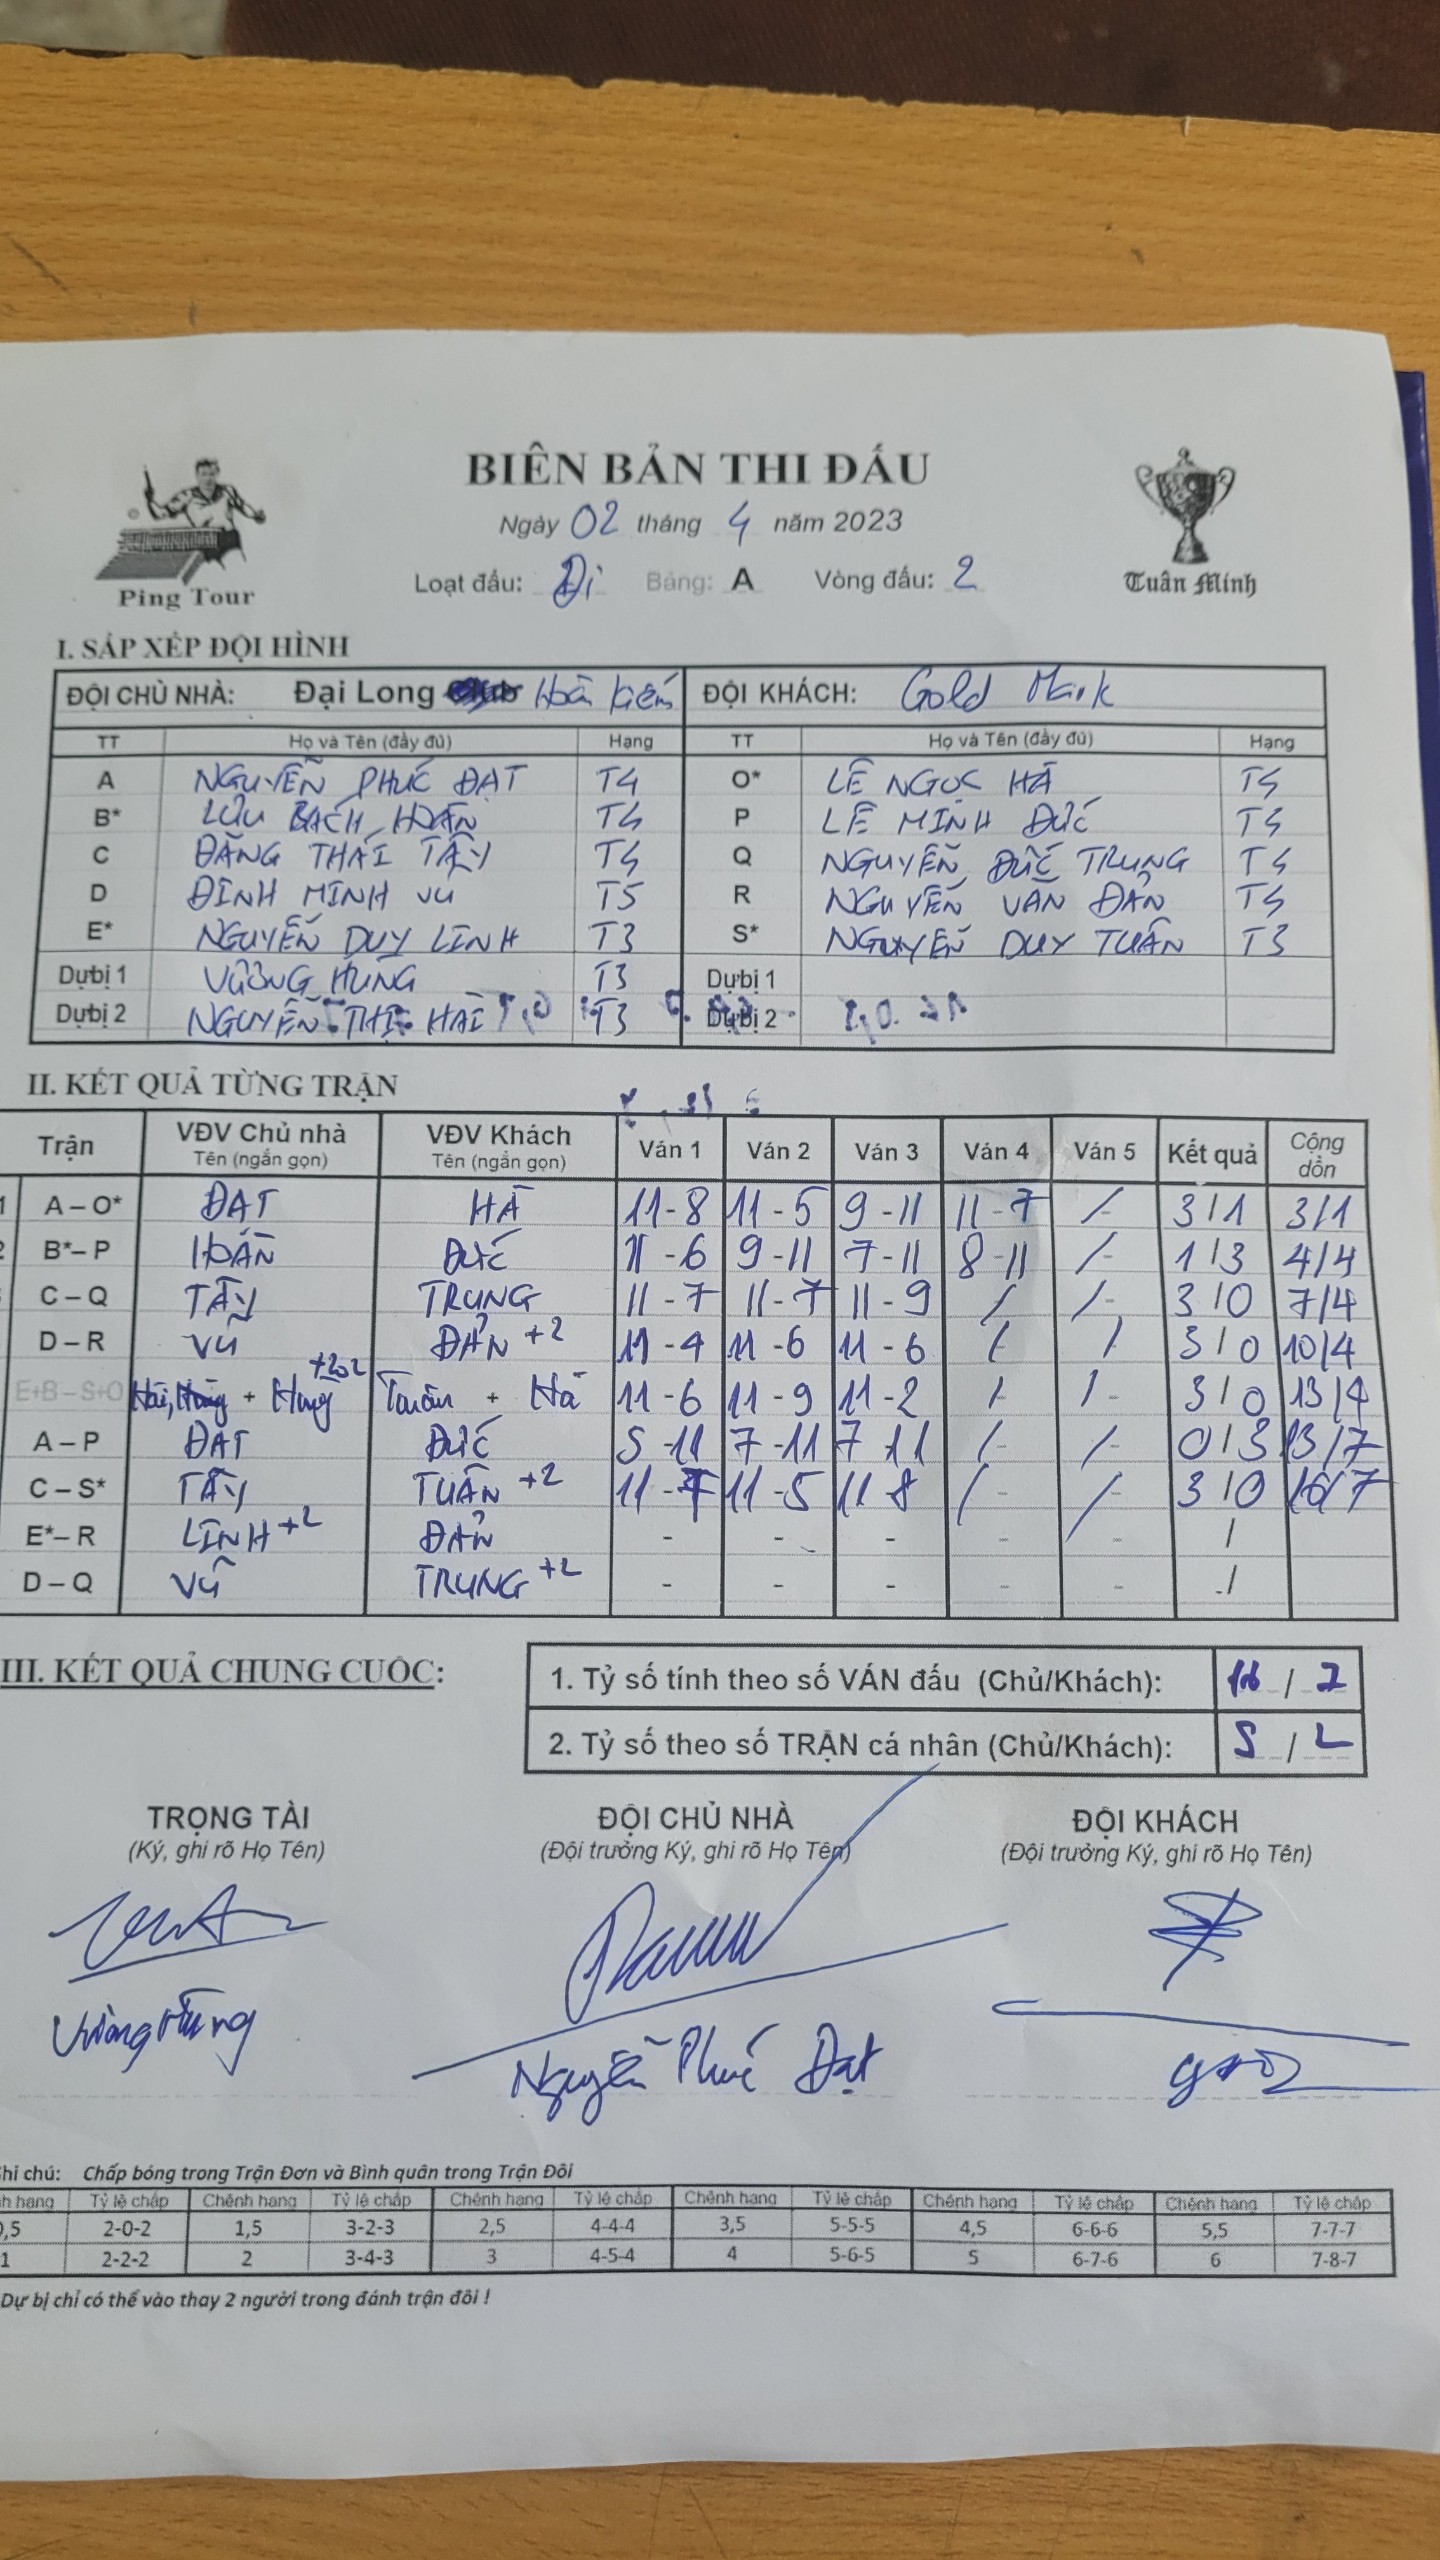 BIÊN BẢN THI ĐẤU
Ngày 02 tháng 4 năm 2023
Loạt đấu: Đi Bảng: A Vòng đấu: 2
Ping Tour
Tuấn Minh
I. SẮP XẾP ĐỘI HÌNH
ĐỘI CHỦ NHÀ: Đại Long Hoàn Kiếm ĐỘI KHÁCH: Gold Mark
TT Họ và Tên (đầy đủ) Hạng TT Họ và Tên (đầy đủ) Hạng
A NGUYỄN PHÚC ĐẠT T4 O* LÊ NGỌC HÀ T4
B* LƯU BÁCH HOÀN T4 P LÊ MINH ĐỨC T4
C ĐẶNG THÁI TÂY T4 Q NGUYỄN ĐỨC TRUNG T4
D ĐINH MINH VŨ T5 R NGUYỄN VĂN ĐẢN T4
E* NGUYỄN DUY LINH T3 S* NGUYỄN DUY TUẤN T3
Dự bị 1 VƯƠNG HÙNG T3 Dự bị 1
Dự bị 2 NGUYỄN THỊ HẢI T3 Dự bị 2
II. KẾT QUẢ TỪNG TRẬN
Trận VĐV Chủ nhà VĐV Khách Ván 1 Ván 2 Ván 3 Ván 4 Ván 5 Kết quả Cộng dồn
Tên (ngắn gọn) Tên (ngắn gọn)
1 A – O* ĐẠT HÀ 11 - 8 11 - 5 9 - 11 11 - 7 / - 3 / 1 3/1
2 B* – P HOÀN ĐỨC 11 - 6 9 - 11 7 - 11 8 - 11 / - 1 / 3 4/4
C – Q TÂY TRUNG 11 - 7 11 - 7 11 - 9 / / - 3 / 0 7/4
D – R VŨ ĐẢN +2 11 - 4 11 - 6 11 - 6 / / 3 / 0 10/4
E+B – S+O + Hùng Tuấn + Hà 11 - 6 11 - 9 11 - 2 / / - 3 / 0 13/4
A – P ĐẠT ĐỨC 5 - 11 7 - 11 7 - 11 / - / - 0 / 3 13/7
C – S* TÂY TUẤN +2 11 - 7 11 - 5 11 - 8 / - / - 3 / 0 16/7
E* – R LINH +2 ĐẢN - - - - - /
D – Q VŨ TRUNG +2 - - - - - /
III. KẾT QUẢ CHUNG CUỘC:
1. Tỷ số tính theo số VÁN đấu (Chủ/Khách): 16 / 7
2. Tỷ số theo số TRẬN cá nhân (Chủ/Khách): 5 / 2
TRỌNG TÀI ĐỘI CHỦ NHÀ ĐỘI KHÁCH
(Ký, ghi rõ Họ Tên) (Đội trưởng Ký, ghi rõ Họ Tên) (Đội trưởng Ký, ghi rõ Họ Tên)
Vương Hùng Nguyễn Phúc Đạt
Ghi chú: Chấp bóng trong Trận Đơn và Bình quân trong Trận Đôi
Chênh hạng Tỷ lệ chấp Chênh hạng Tỷ lệ chấp Chênh hạng Tỷ lệ chấp Chênh hạng Tỷ lệ chấp Chênh hạng Tỷ lệ chấp Chênh hạng Tỷ lệ chấp
0,5 2-0-2 1,5 3-2-3 2,5 4-4-4 3,5 5-5-5 4,5 6-6-6 5,5 7-7-7
1 2-2-2 2 3-4-3 3 4-5-4 4 5-6-5 5 6-7-6 6 7-8-7
Dự bị chỉ có thể vào thay 2 người trong đánh trận đôi !